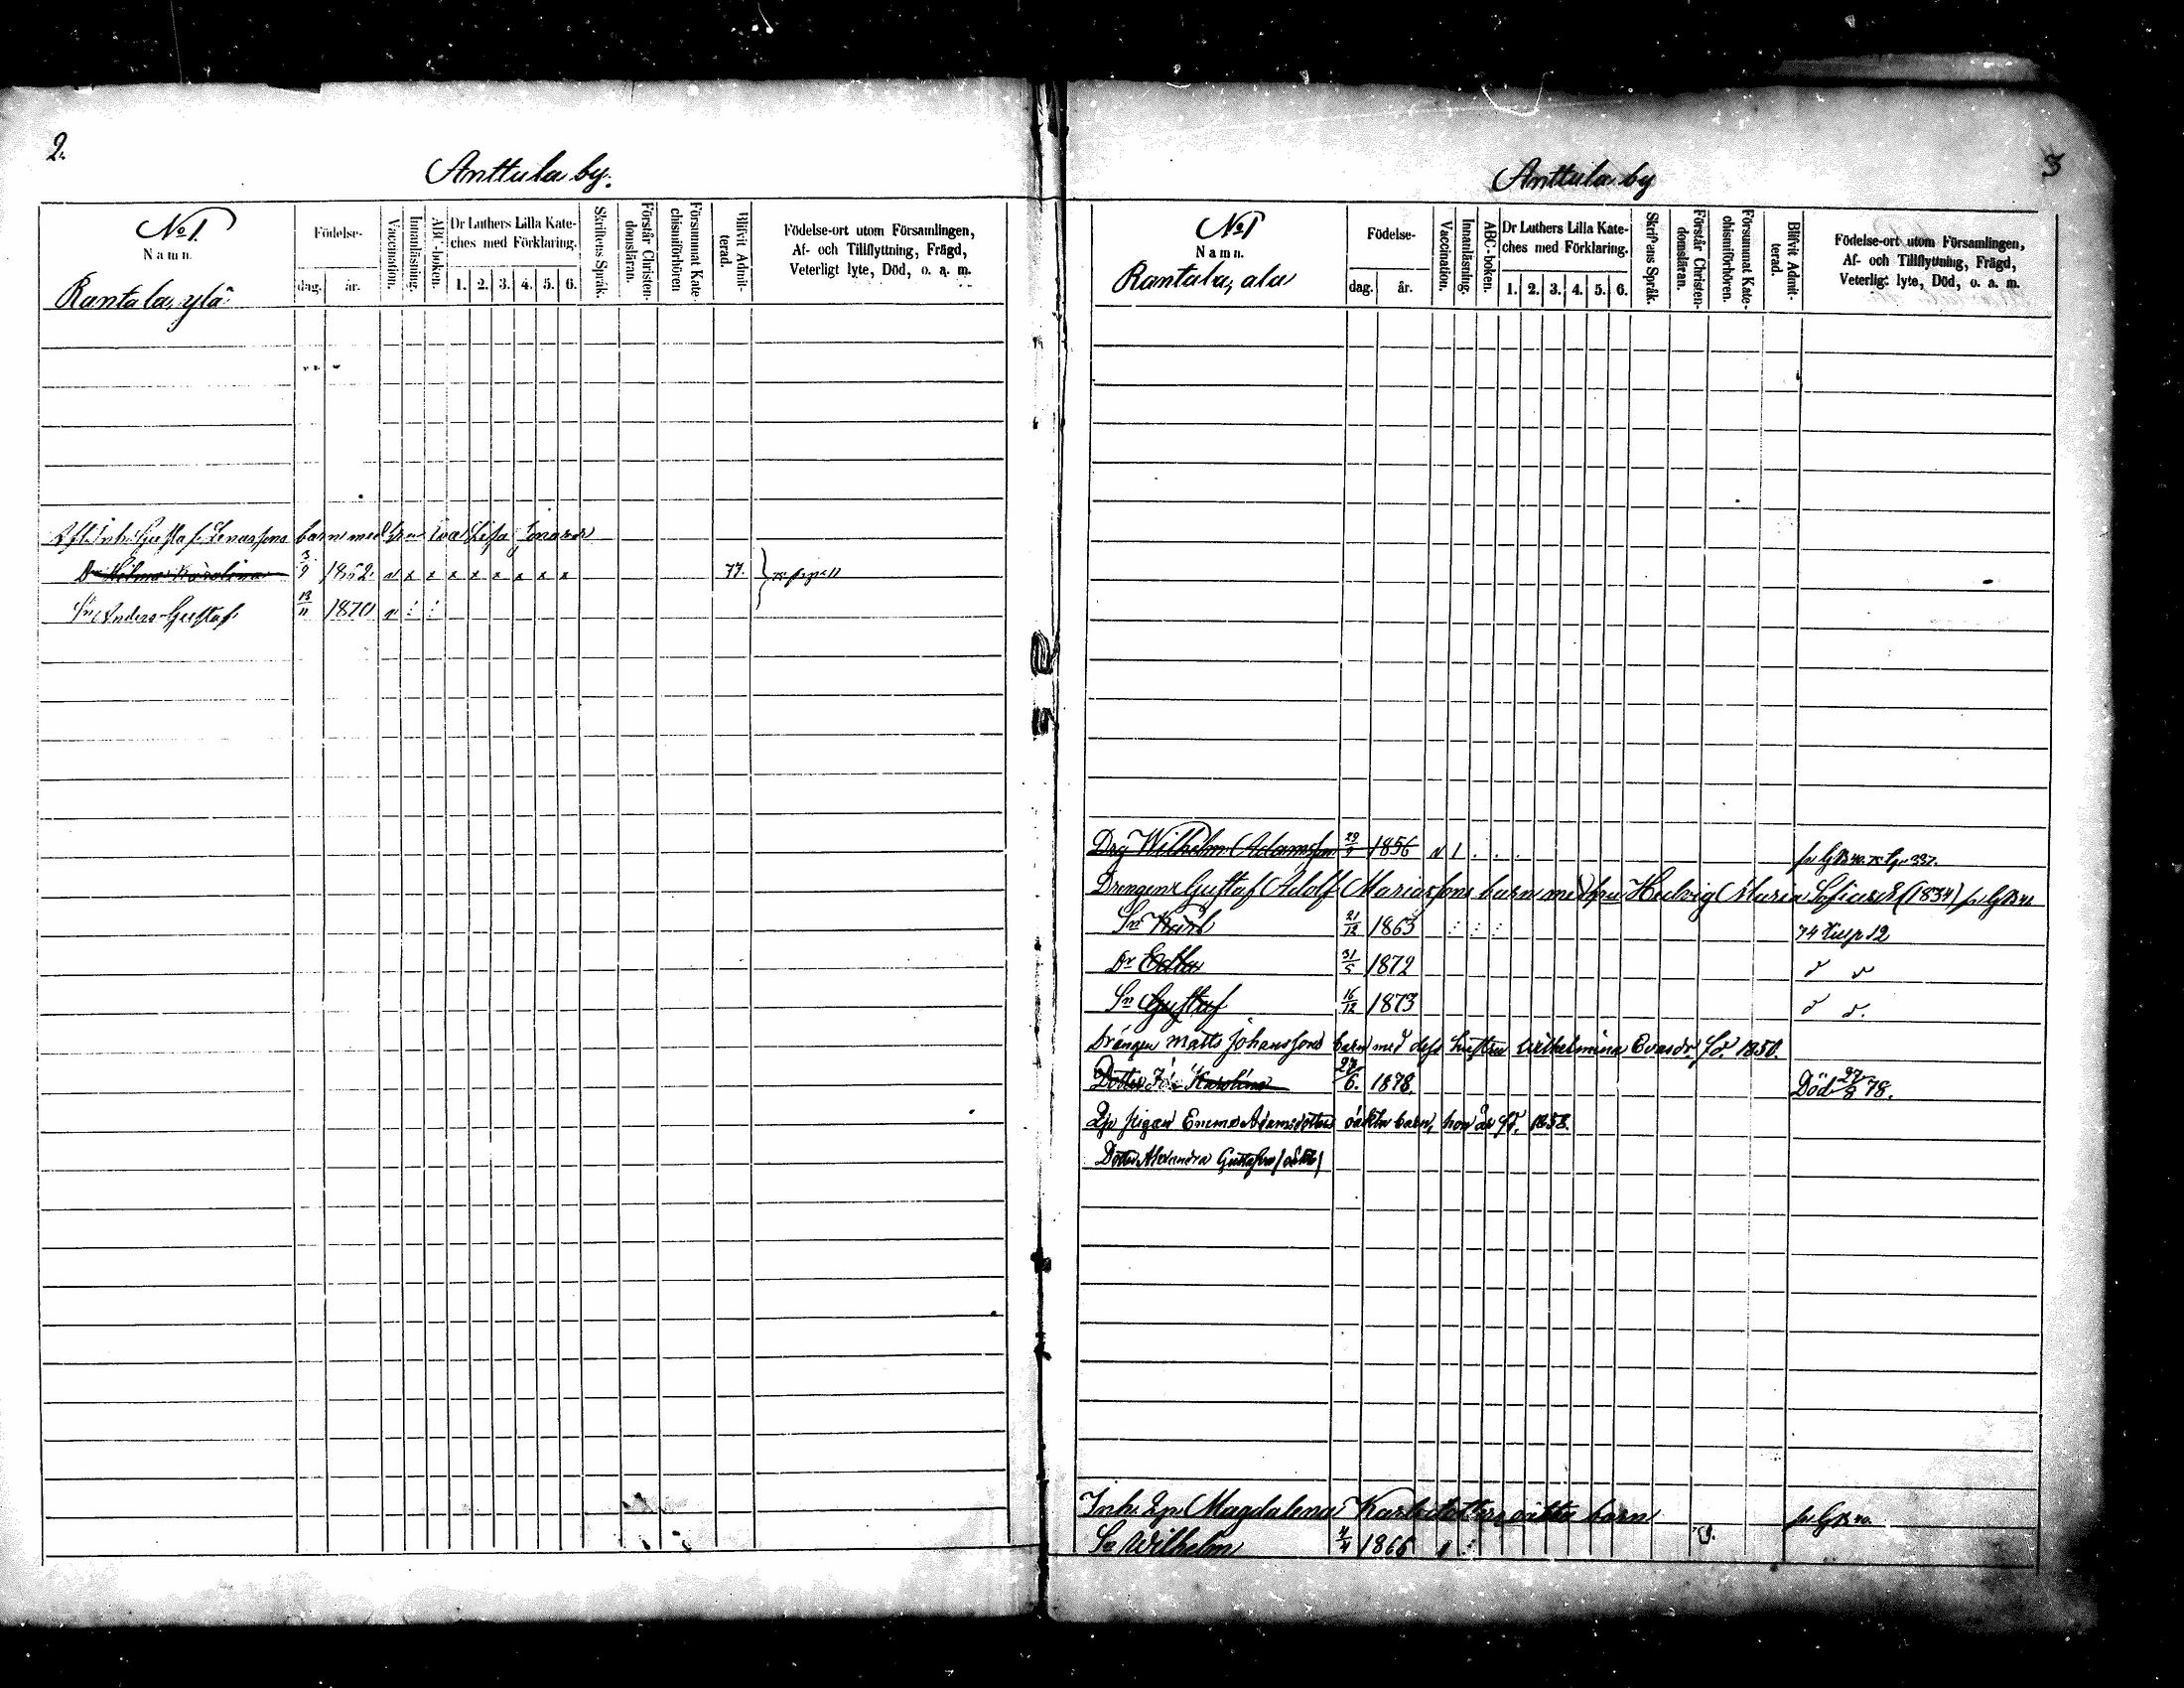 2.
Anttula by.
No 1.
Namn.
Rantala, ylä
Födelse-
dag.
år.
Vaccination.
Innanläsning.
ABC-boken.
Dr Luthers Lilla Kate-
ches med Förklaring.
1. 2. 3. 4. 5. 6.
Skriftens Språk.
Förstår Christen-
domsläran.
Försummat Kate-
chismiförhören
Blifvit Admit-
terad.
Födelse-ort utom Församlingen,
Af- och Tillflyttning, Frägd,
Veterligt lyte, Död, o. a. m.
Inh. Gustaf barn med
Dr Hilma Karolina 3/9 1852. v x x x x x x x x 77.
Sn Anders Gustaf 13/11 1870
3
Anttula by
No 1
Namn.
Rantala, ala
Födelse-
dag.
år.
Vaccination.
Innanläsning.
ABC-boken.
Dr Luthers Lilla Kate-
ches med Förklaring.
1. 2. 3. 4. 5. 6.
Skriftens Språk.
Förstår Christen-
domsläran.
Försummat Kate-
chismiförhören.
Blifvit Admit-
terad.
Födelse-ort utom Församlingen,
Af- och Tillflyttning, Frägd,
Veterligt lyte, Död, o. a. m.
Drg Wilhelm Adamsson 29/9 1856 v 1 . . . 337.
Drengens Gustaf Adolf Mariassons barn med hu Hedvig Maria (1834)
Sn Karl 21/12 1863 74 till p 12
Dr Edla 31/5 1872 d d
Sn Gustaf 16/12 1873 d d.
Drängen Matts Johanssons barn med dess hustru Wilhelmina Evasdr fd. 1850.
Dotter Karolina 27/6. 1878. Död 27/8 78.
Pigan Emma Adamsdotters oäkta barn, hon är fd. 1858.
Dotter Alexandra Gustafva (oäkta)
Inh. Magdalena Karlsdotters oäkta barn
Sn Wilhelm 4/4 1866